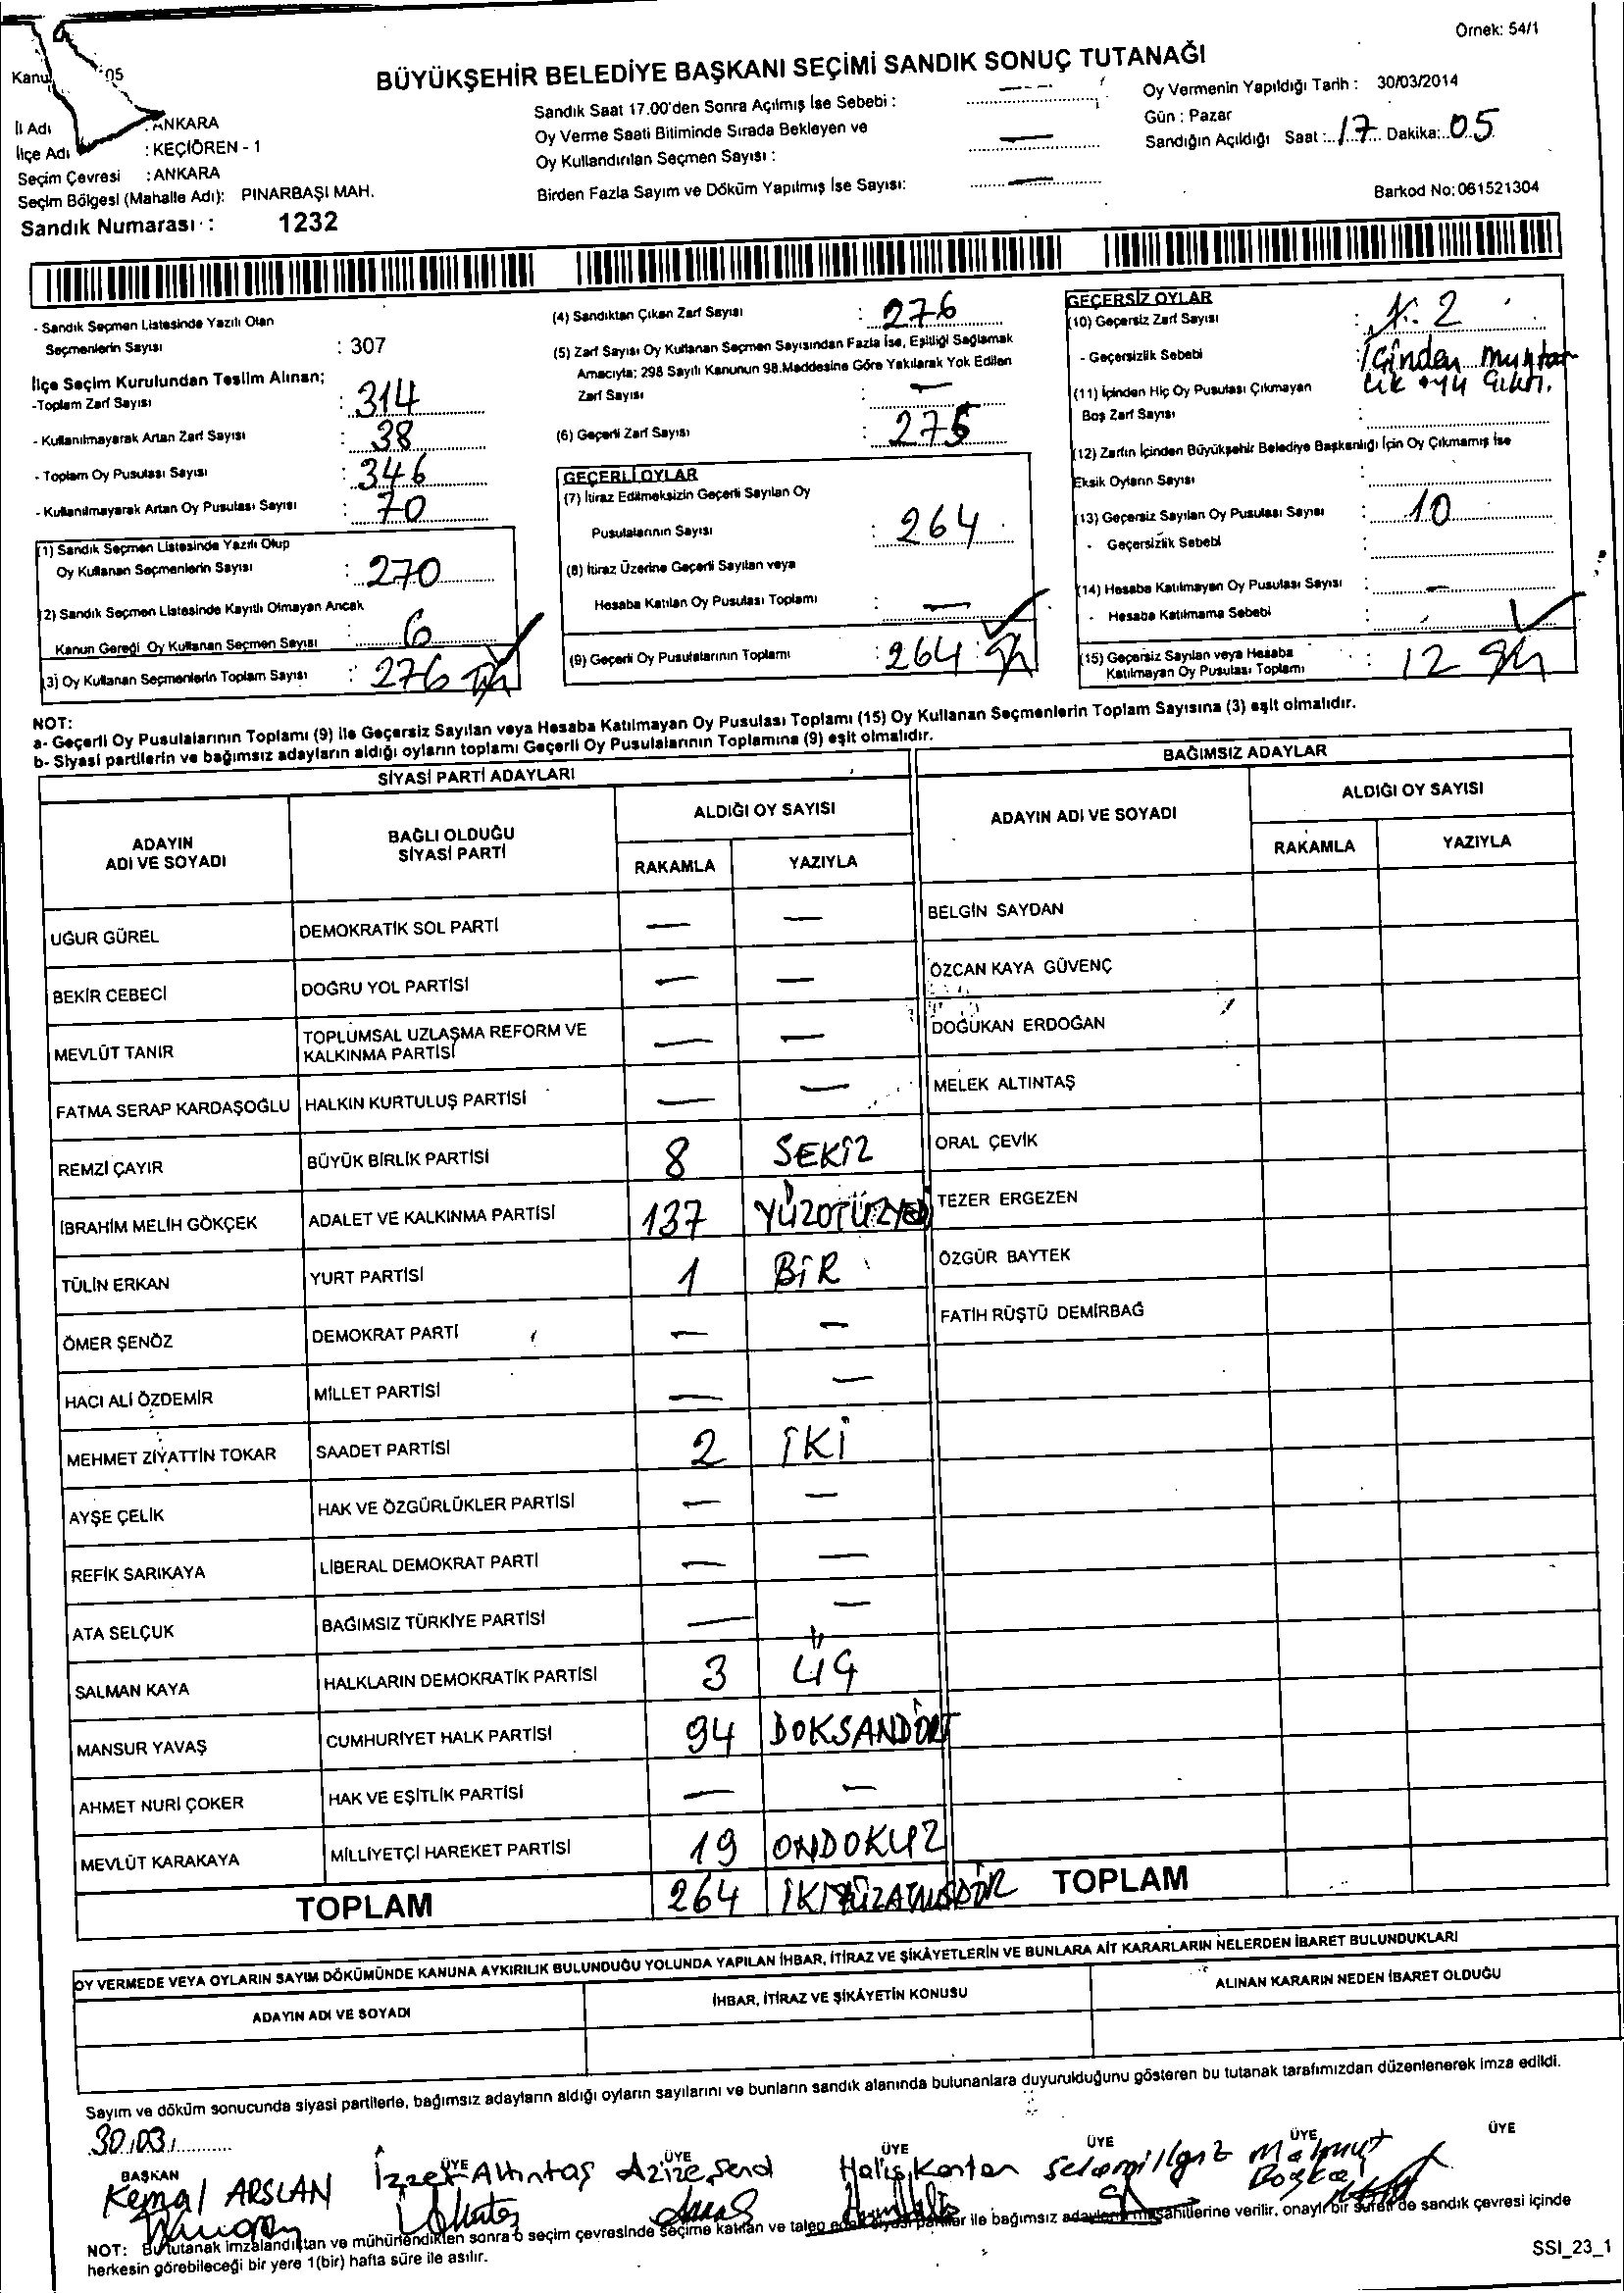 Örnek: 54/1
BÜYÜKŞEHİR BELEDİYE BAŞKANI SEÇİMİ SANDIK SONUÇ TUTANAĞI
05
İl Adı : ANKARA
İlçe Adı : KEÇİÖREN - 1
Seçim Çevresi : ANKARA
Seçim Bölgesi (Mahalle Adı): PINARBAŞI MAH.
Sandık Numarası : 1232
Sandık Saat 17.00'den Sonra Açılmış İse Sebebi :
Oy Verme Saati Bitiminde Sırada Bekleyen ve
Oy Kullandırılan Seçmen Sayısı :
Birden Fazla Sayım ve Döküm Yapılmış İse Sayısı:
Oy Vermenin Yapıldığı Tarih : 30/03/2014
Gün : Pazar
Sandığın Açıldığı Saat : 17 Dakika: 05
Barkod No: 061521304
- Sandık Seçmen Listesinde Yazılı Olan
Seçmenlerin Sayısı : 307
İlçe Seçim Kurulundan Teslim Alınan;
-Toplam Zarf Sayısı : 314
- Kullanılmayarak Artan Zarf Sayısı : 38
- Toplam Oy Pusulası Sayısı : 346
- Kullanılmayarak Artan Oy Pusulası Sayısı : 70
(1) Sandık Seçmen Listesinde Yazılı Olup
Oy Kullanan Seçmenlerin Sayısı : 270
(2) Sandık Seçmen Listesinde Kayıtlı Olmayan Ancak
Kanun Gereği Oy Kullanan Seçmen Sayısı : 6
(3) Oy Kullanan Seçmenlerin Toplam Sayısı : 276
(4) Sandıktan Çıkan Zarf Sayısı : 276
(5) Zarf Sayısı Oy Kullanan Seçmen Sayısından Fazla İse, Eşitliği Sağlamak
Amacıyla; 298 Sayılı Kanunun 98.Maddesine Göre Yakılarak Yok Edilen
Zarf Sayısı : —
(6) Geçerli Zarf Sayısı : 275
GEÇERLİ OYLAR
(7) İtiraz Edilmeksizin Geçerli Sayılan Oy
Pusulalarının Sayısı : 264
(8) İtiraz Üzerine Geçerli Sayılan veya
Hesaba Katılan Oy Pusulası Toplamı : —
(9) Geçerli Oy Pusulalarının Toplamı : 264
GEÇERSİZ OYLAR
(10) Geçersiz Zarf Sayısı : 2
- Geçersizlik Sebebi : İçinden muhtar
lık oyu çıktı.
(11) İçinden Hiç Oy Pusulası Çıkmayan
Boş Zarf Sayısı :
(12) Zarfın İçinden Büyükşehir Belediye Başkanlığı İçin Oy Çıkmamış İse
Eksik Oyların Sayısı :
(13) Geçersiz Sayılan Oy Pusulası Sayısı : 10
- Geçersizlik Sebebi :
(14) Hesaba Katılmayan Oy Pusulası Sayısı : —
- Hesaba Katılmama Sebebi :
(15) Geçersiz Sayılan veya Hesaba
Katılmayan Oy Pusulası Toplamı : 12
NOT:
a- Geçerli Oy Pusulalarının Toplamı (9) ile Geçersiz Sayılan veya Hesaba Katılmayan Oy Pusulası Toplamı (15) Oy Kullanan Seçmenlerin Toplam Sayısına (3) eşit olmalıdır.
b- Siyasi partilerin ve bağımsız adayların aldığı oyların toplamı Geçerli Oy Pusulalarının Toplamına (9) eşit olmalıdır.
SİYASİ PARTİ ADAYLARI
ADAYIN ADI VE SOYADI
BAĞLI OLDUĞU SİYASİ PARTİ
ALDIĞI OY SAYISI
RAKAMLA YAZIYLA
UĞUR GÜREL DEMOKRATİK SOL PARTİ — —
BEKİR CEBECİ DOĞRU YOL PARTİSİ — —
MEVLÜT TANIR TOPLUMSAL UZLAŞMA REFORM VE KALKINMA PARTİSİ — —
FATMA SERAP KARDAŞOĞLU HALKIN KURTULUŞ PARTİSİ — —
REMZİ ÇAYIR BÜYÜK BİRLİK PARTİSİ 8 SEKİZ
İBRAHİM MELİH GÖKÇEK ADALET VE KALKINMA PARTİSİ 137
TÜLİN ERKAN YURT PARTİSİ 1 BİR
ÖMER ŞENÖZ DEMOKRAT PARTİ — —
HACI ALİ ÖZDEMİR MİLLET PARTİSİ — —
MEHMET ZİYATTİN TOKAR SAADET PARTİSİ 2 İKİ
AYŞE ÇELİK HAK VE ÖZGÜRLÜKLER PARTİSİ — —
REFİK SARIKAYA LİBERAL DEMOKRAT PARTİ — —
ATA SELÇUK BAĞIMSIZ TÜRKİYE PARTİSİ — —
SALMAN KAYA HALKLARIN DEMOKRATİK PARTİSİ 3 ÜÇ
MANSUR YAVAŞ CUMHURİYET HALK PARTİSİ 94 DOKSANDÖRT
AHMET NURİ ÇOKER HAK VE EŞİTLİK PARTİSİ — —
MEVLÜT KARAKAYA MİLLİYETÇİ HAREKET PARTİSİ 19 ONDOKUZ
TOPLAM 264
BAĞIMSIZ ADAYLAR
ADAYIN ADI VE SOYADI
ALDIĞI OY SAYISI
RAKAMLA YAZIYLA
BELGİN SAYDAN
ÖZCAN KAYA GÜVENÇ
DOĞUKAN ERDOĞAN
MELEK ALTINTAŞ
ORAL ÇEVİK
TEZER ERGEZEN
ÖZGÜR BAYTEK
FATİH RÜŞTÜ DEMİRBAĞ
TOPLAM
OY VERMEDE VEYA OYLARIN SAYIM DÖKÜMÜNDE KANUNA AYKIRILIK BULUNDUĞU YOLUNDA YAPILAN İHBAR, İTİRAZ VE ŞİKÂYETLERİN VE BUNLARA AİT KARARLARIN NELERDEN İBARET BULUNDUKLARI
ADAYIN ADI VE SOYADI
İHBAR, İTİRAZ VE ŞİKÂYETİN KONUSU
ALINAN KARARIN NEDEN İBARET OLDUĞU
Sayım ve döküm sonucunda siyasi partilerle, bağımsız adayların aldığı oyların sayılarını ve bunların sandık alanında bulunanlara duyurulduğunu gösteren bu tutanak tarafımızdan düzenlenerek imza edildi.
30.03.
BAŞKAN ÜYE ÜYE ÜYE ÜYE ÜYE ÜYE
Kemal ARSLAN İzzet Altıntaş Azize Halis Mahmut
NOT: Bu tutanak imzalandıktan ve mühürlendikten sonra o seçim çevresinde seçime katılan ve talep eden siyasi partiler ile bağımsız adayların müşahitlerine verilir, onaylı bir sureti de sandık çevresi içinde
herkesin görebileceği bir yere 1(bir) hafta süre ile asılır.
SSI_23_1